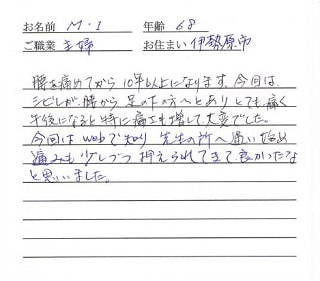 お名前 M・I 年齢 68
ご職業 主婦 お住まい 伊勢原市
腰を痛めてから10年以上になります。今回は
シビレが、腰から足の下の方へとありとても痛く
午後になると特に痛さも増して大変でした。
今回はwebで知り先生の所へ通い始め
痛みも少しづつ押えられてきて良かったな
と思いいました。